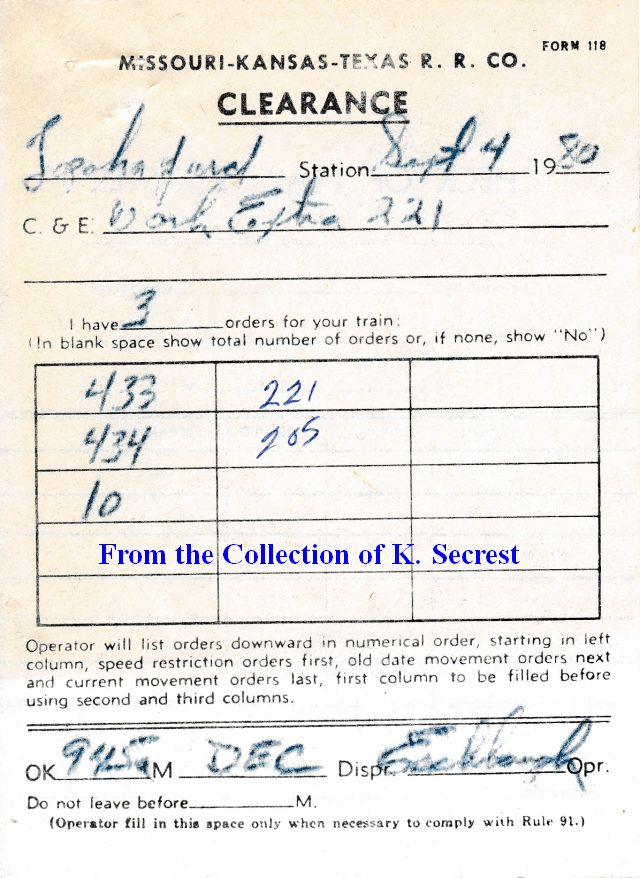 FORM 118
MISSOURI-KANSAS-TEXAS R. R. CO.
CLEARANCE
Topeka yard Station Sept 4 1980
C. & E. Work Extra 221
I have 3 orders for your train:
(In blank space show total number of orders or, if none, show "No")
433 221
434 205
10
From the Collection of K. Secrest
Operator will list orders downward in numerical order, starting in left
column, speed restriction orders first, old date movement orders next
and current movement orders last, first column to be filled before
using second and third columns.
OK 945 A M DEC Dispr. Opr.
Do not leave before M.
(Operator fill in this space only when necessary to comply with Rule 91.)